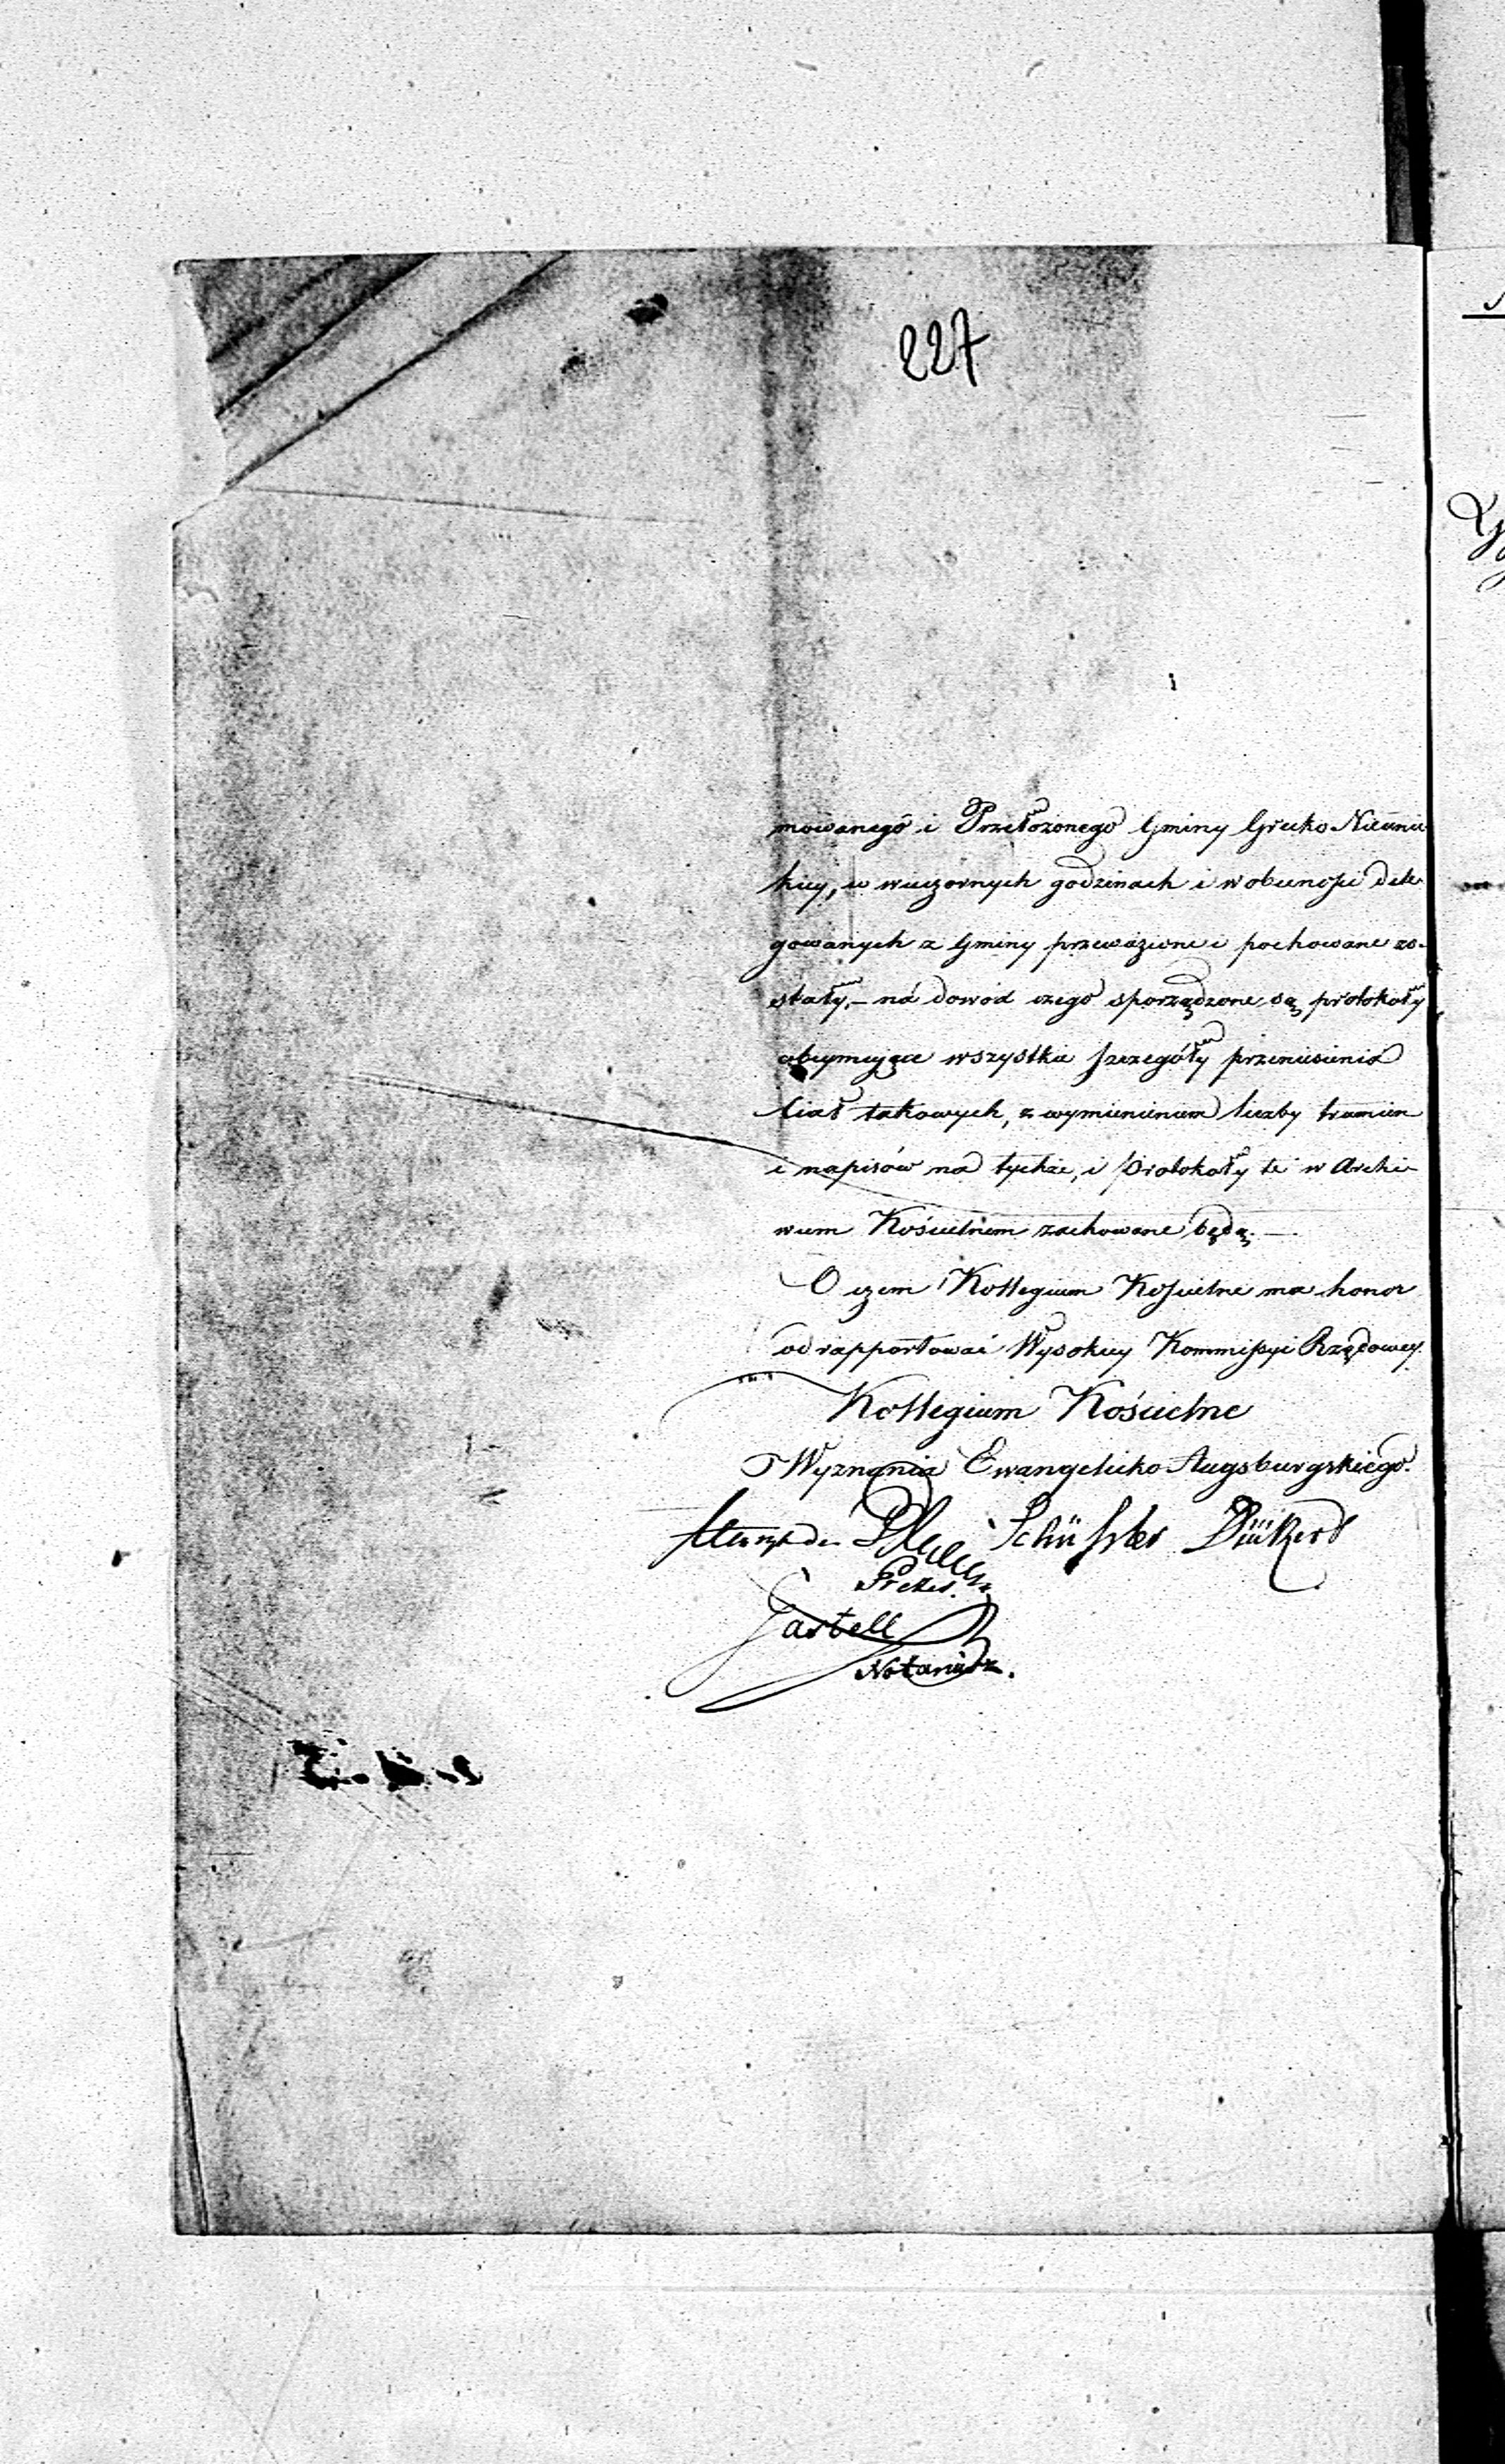 227
mowanego i Przełożonego Gminy Grecko Nieunic
kiey, w wieczornych godzinach i w obecności dele-
gowanych z Gminy przewiezione i pochowane zo-
stały, – na dowód czego sporządzone są protokoły
obeymujące wszystkie szczegóły przeniesienia
Ciał takowych, z wymienieniem liczby trumien
i napisów na tychże, i Protokoły te w Archi-
wum Kościelnem zachowane będą. –
O czem Kollegium Kościelne ma honor
odrapportować Wysokiey Kommissyi Rządowey.
Kollegium Kościelne
Wyznania Ewangelicko Augsburgskiego.
Schüssler Dückert
Prezes.
Gastell
Notariusz.